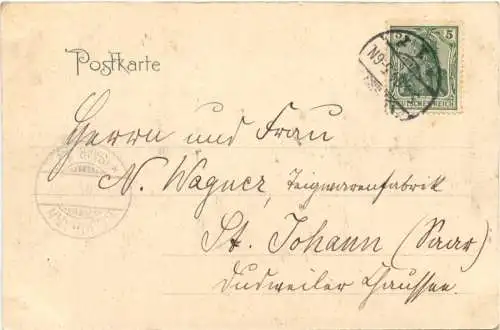 Postkarte
5
DEUTSCHES REICH
Herrn und Frau
N. Wagner, Teigwarenfabrik
St. Johann (Saar)
Dudweiler Chaussee.